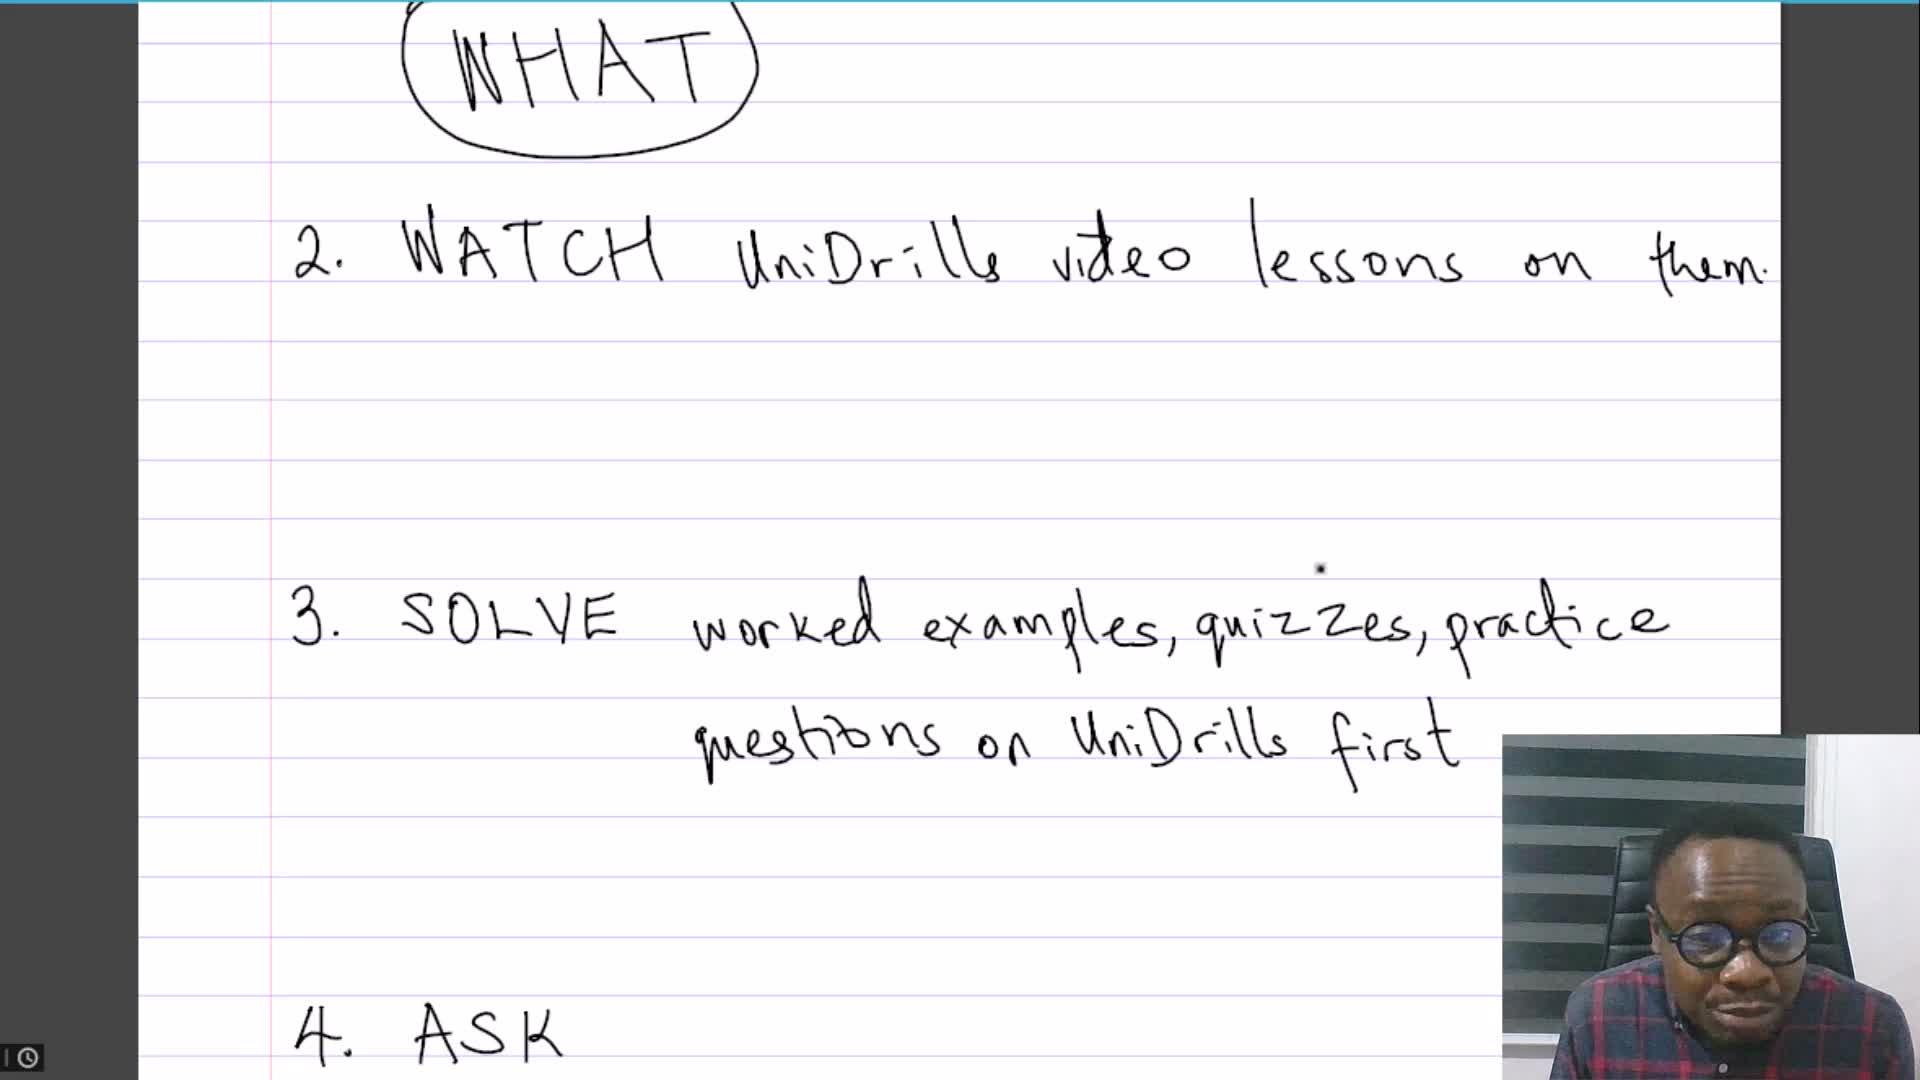 WHAT
2. WATCH UniDrills video lessons on them.
3. SOLVE worked examples, quizzes, practice
questions on UniDrills first
4. ASK